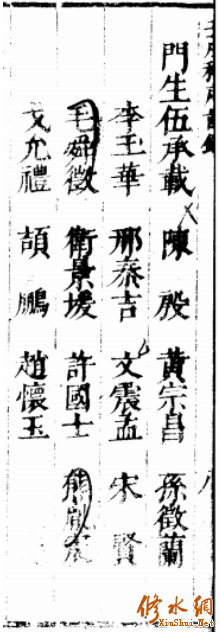 門生伍承載 陳殷 黃宗昌 孫徵蘭
李玉華 邢泰吉 文震孟 宋賢
毛舜徵 衛景瑗 許國士
戈允禮 頡鵬 趙懷玉
修水網
XiuShui.Net